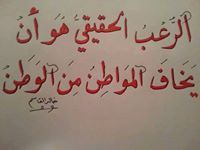 الرُّعْبُ الحَقِيقيُّ هُوَ أَنْ
يَخَافَ المُوَاطِنُ مِنَ الوَطَنْ